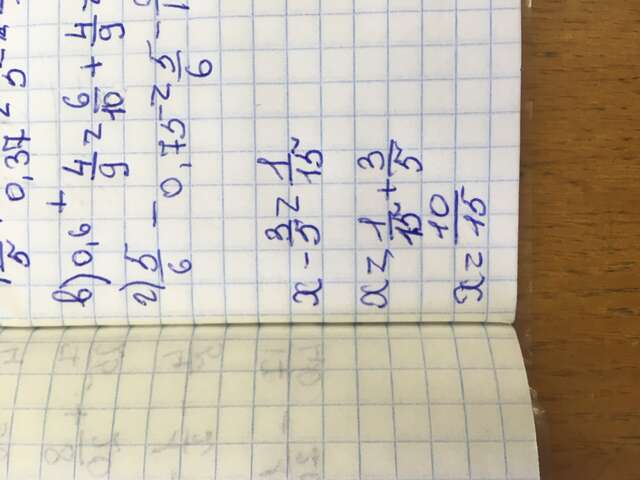 5 0,37 = 5
в) 0,6 + 4/9 = 6/10 + 4/9 =
г) 5/6 - 0,75 = 5/6 -
x - 3/5 = 1/15
x = 1/15 + 3/5
x = 10/15